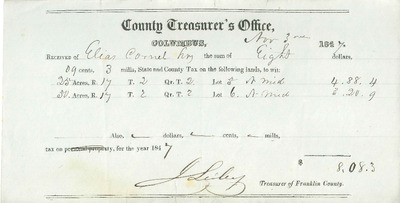 County Treasurer's Office,
COLUMBUS, Nov 3rd 1847.
RECEIVED OF Elias Cornel the sum of Eight dollars,
09 cents. 3 mills, State and County Tax on the following lands, to wit:
25 Acres, R. 17 T. 2 Qr. T. 2 Lot 5 N Mid 4.88.4
30 Acres, R. 17 T. 2 Qr. T. 2 Lot 6 N Mid 3.20.9
Also, dollars, cents, mills,
tax on personal property, for the year 1847
$ 8.08.3
Treasurer of Franklin County.